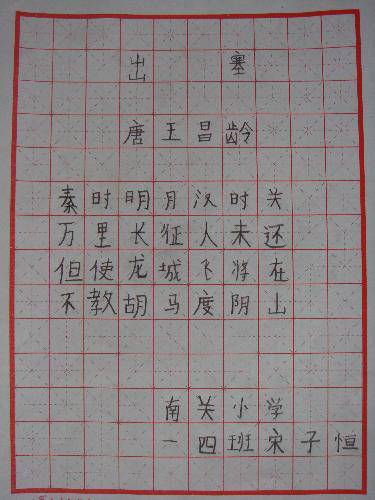 出塞
唐王昌龄
秦时明月汉时关
万里长征人未还
但使龙城飞将在
不教胡马度阴山
南关小学
一四班宋子恒